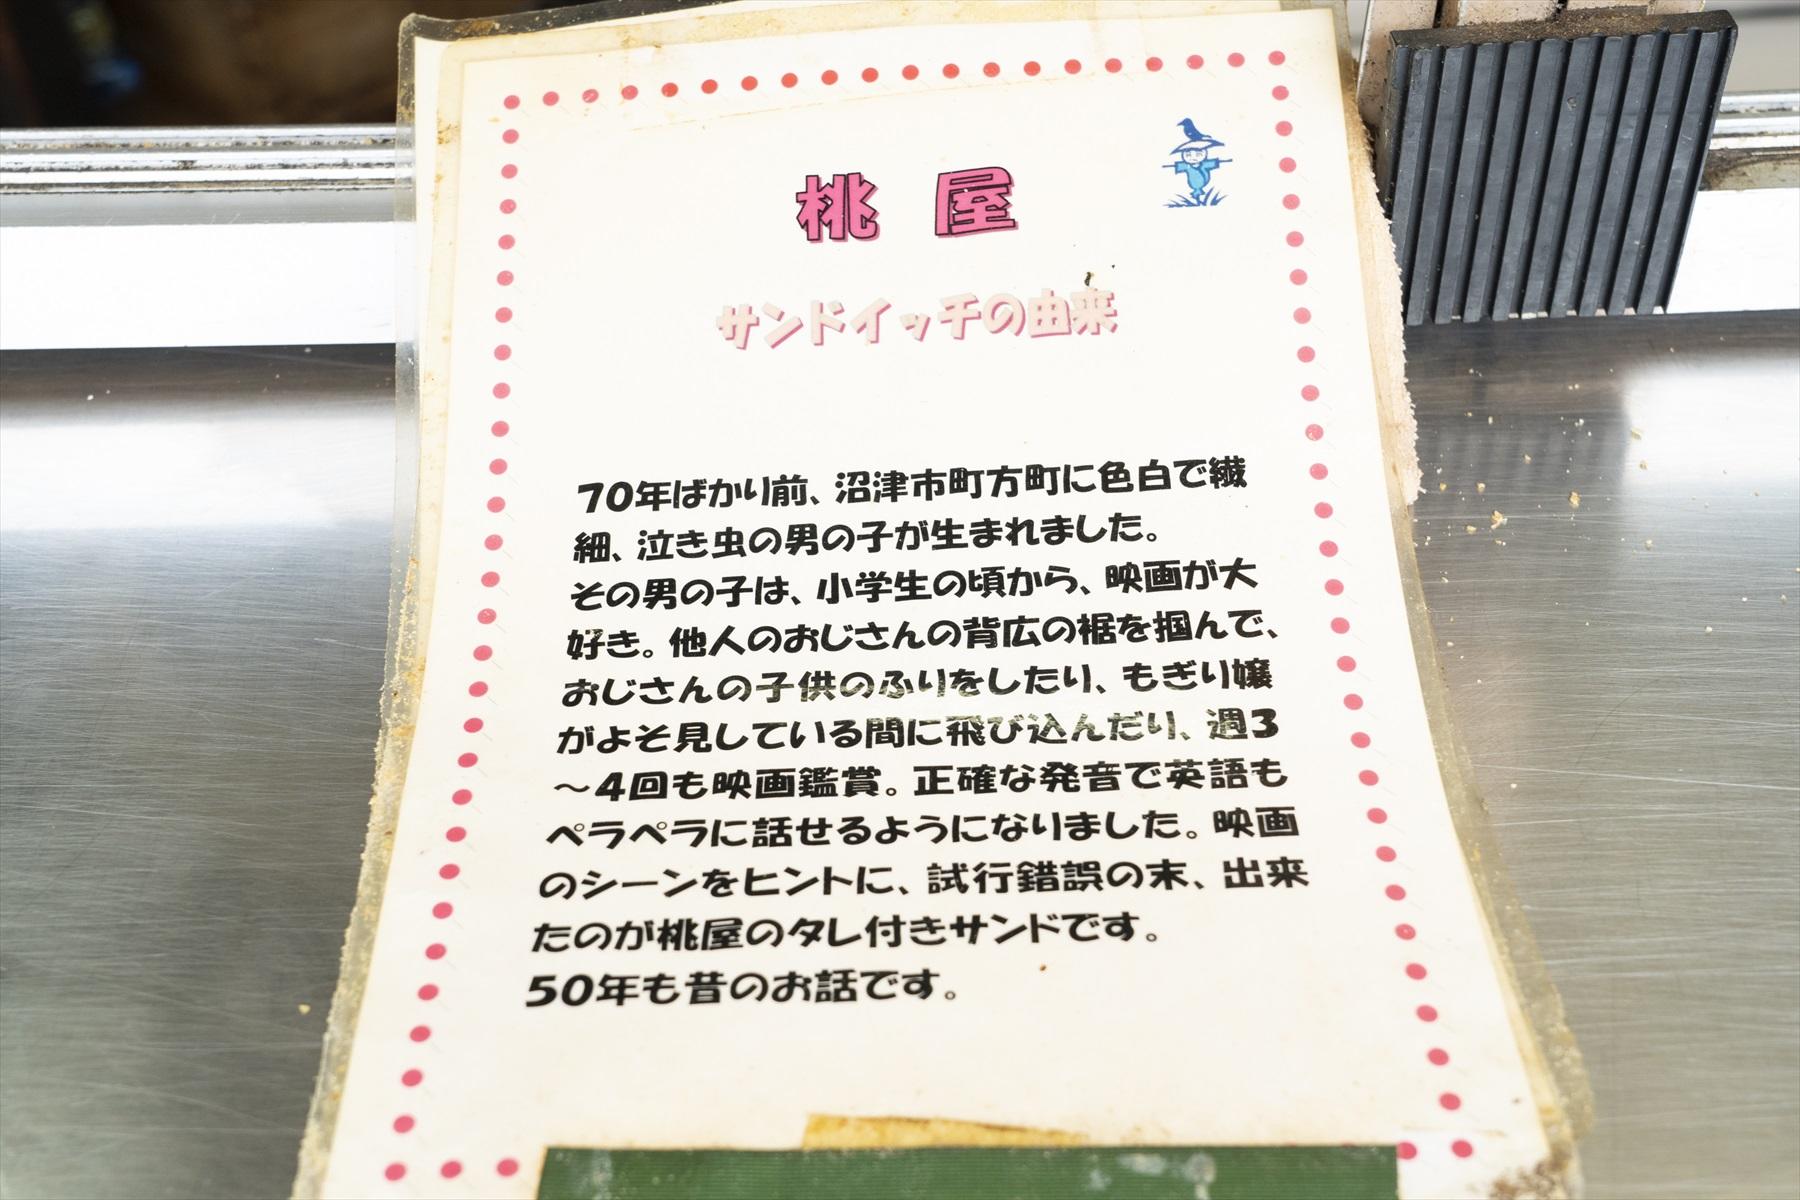 桃屋
サンドイッチの由来
70年ばかり前、沼津市町方町に色白で繊
細、泣き虫の男の子が生まれました。
その男の子は、小学生の頃から、映画が大
好き。他人のおじさんの背広の裾を掴んで、
おじさんの子供のふりをしたり、もぎり嬢
がよそ見している間に飛び込んだり、週3
～4回も映画鑑賞。正確な発音で英語も
ペラペラに話せるようになりました。映画
のシーンをヒントに、試行錯誤の末、出来
たのが桃屋のタレ付きサンドです。
50年も昔のお話です。